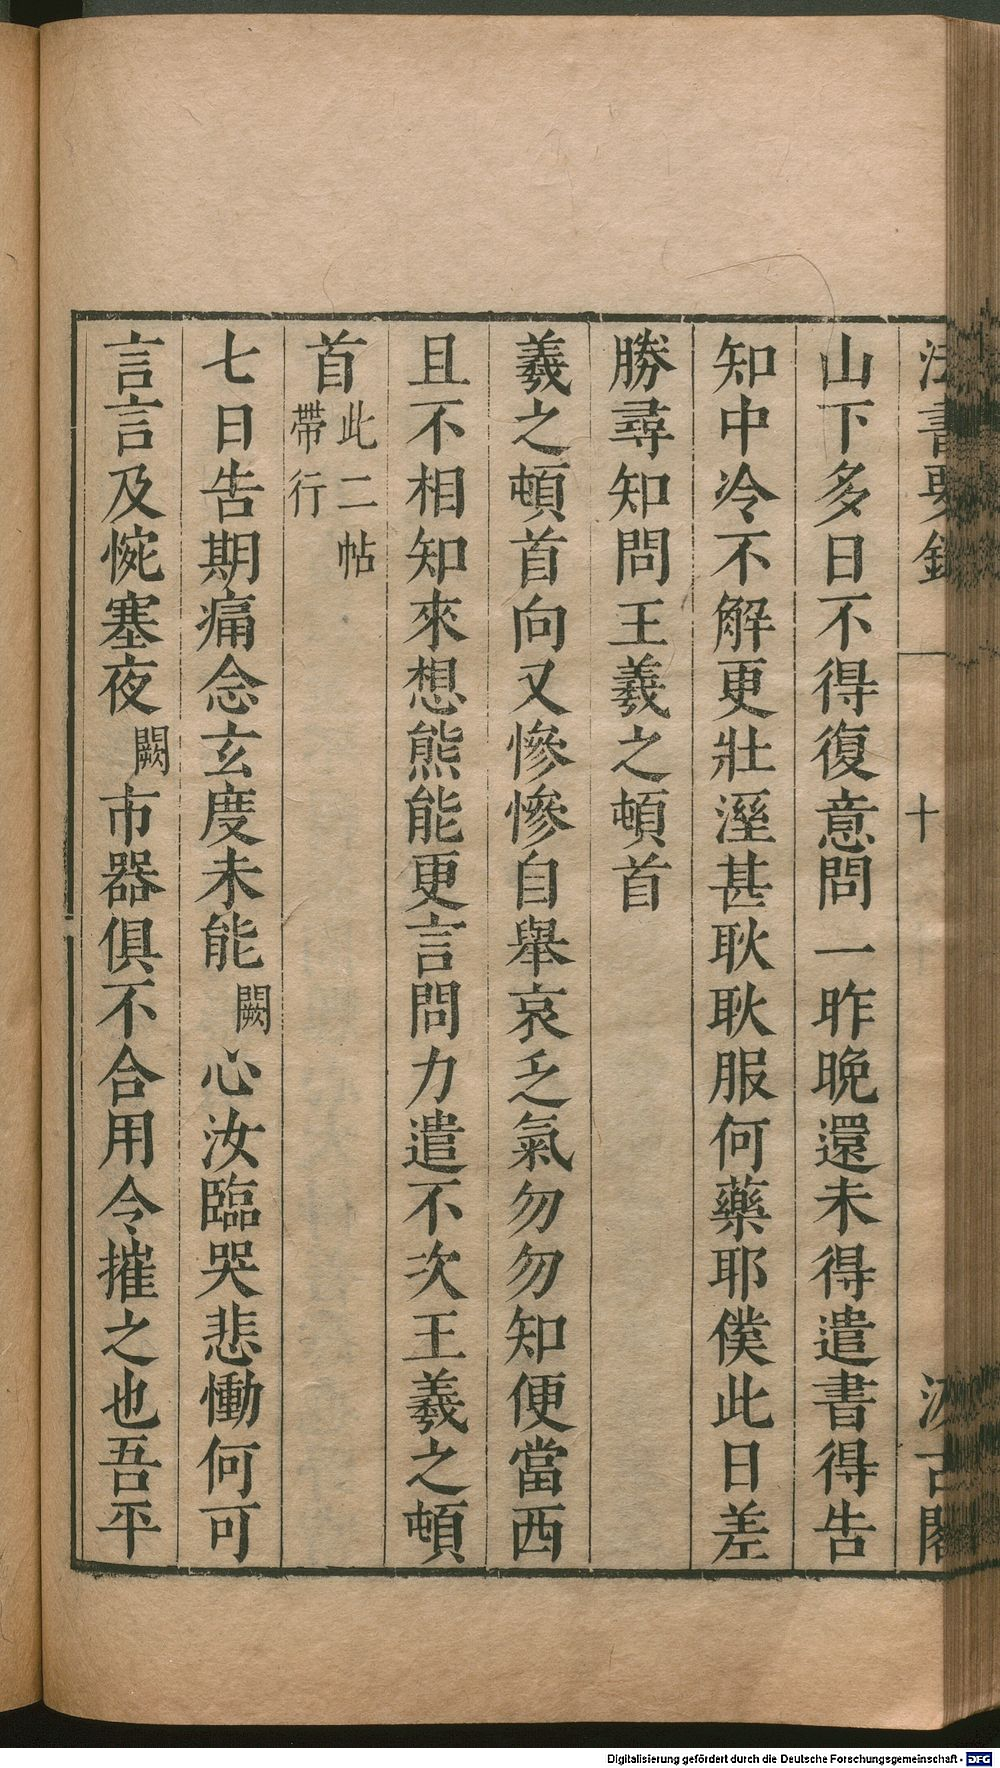 法書要錄
十
汲古閣
山下多日不得復意問一昨晚還未得遣書得告
知中冷不解更壯溼甚耿耿服何藥耶僕此日差
勝尋知問王羲之頓首
羲之頓首向又慘慘自舉哀乏氣勿勿知便當西
且不相知來想熊能更言問力遣不次王羲之頓
首此二帖帶行
七日告期痛念玄度未能闕心汝臨哭悲慟何可
言言及惋塞夜闕市器俱不合用令摧之也吾平
Digitalisierung gefördert durch die Deutsche Forschungsgemeinschaft - DFG